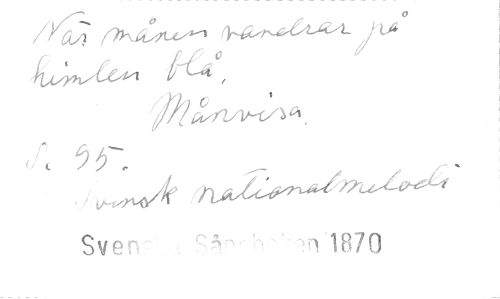 När månen vandrar på
himlen blå.
Månvisa.
S. 95.
Svensk nationalmelodi
Svenska Sångboken 1870